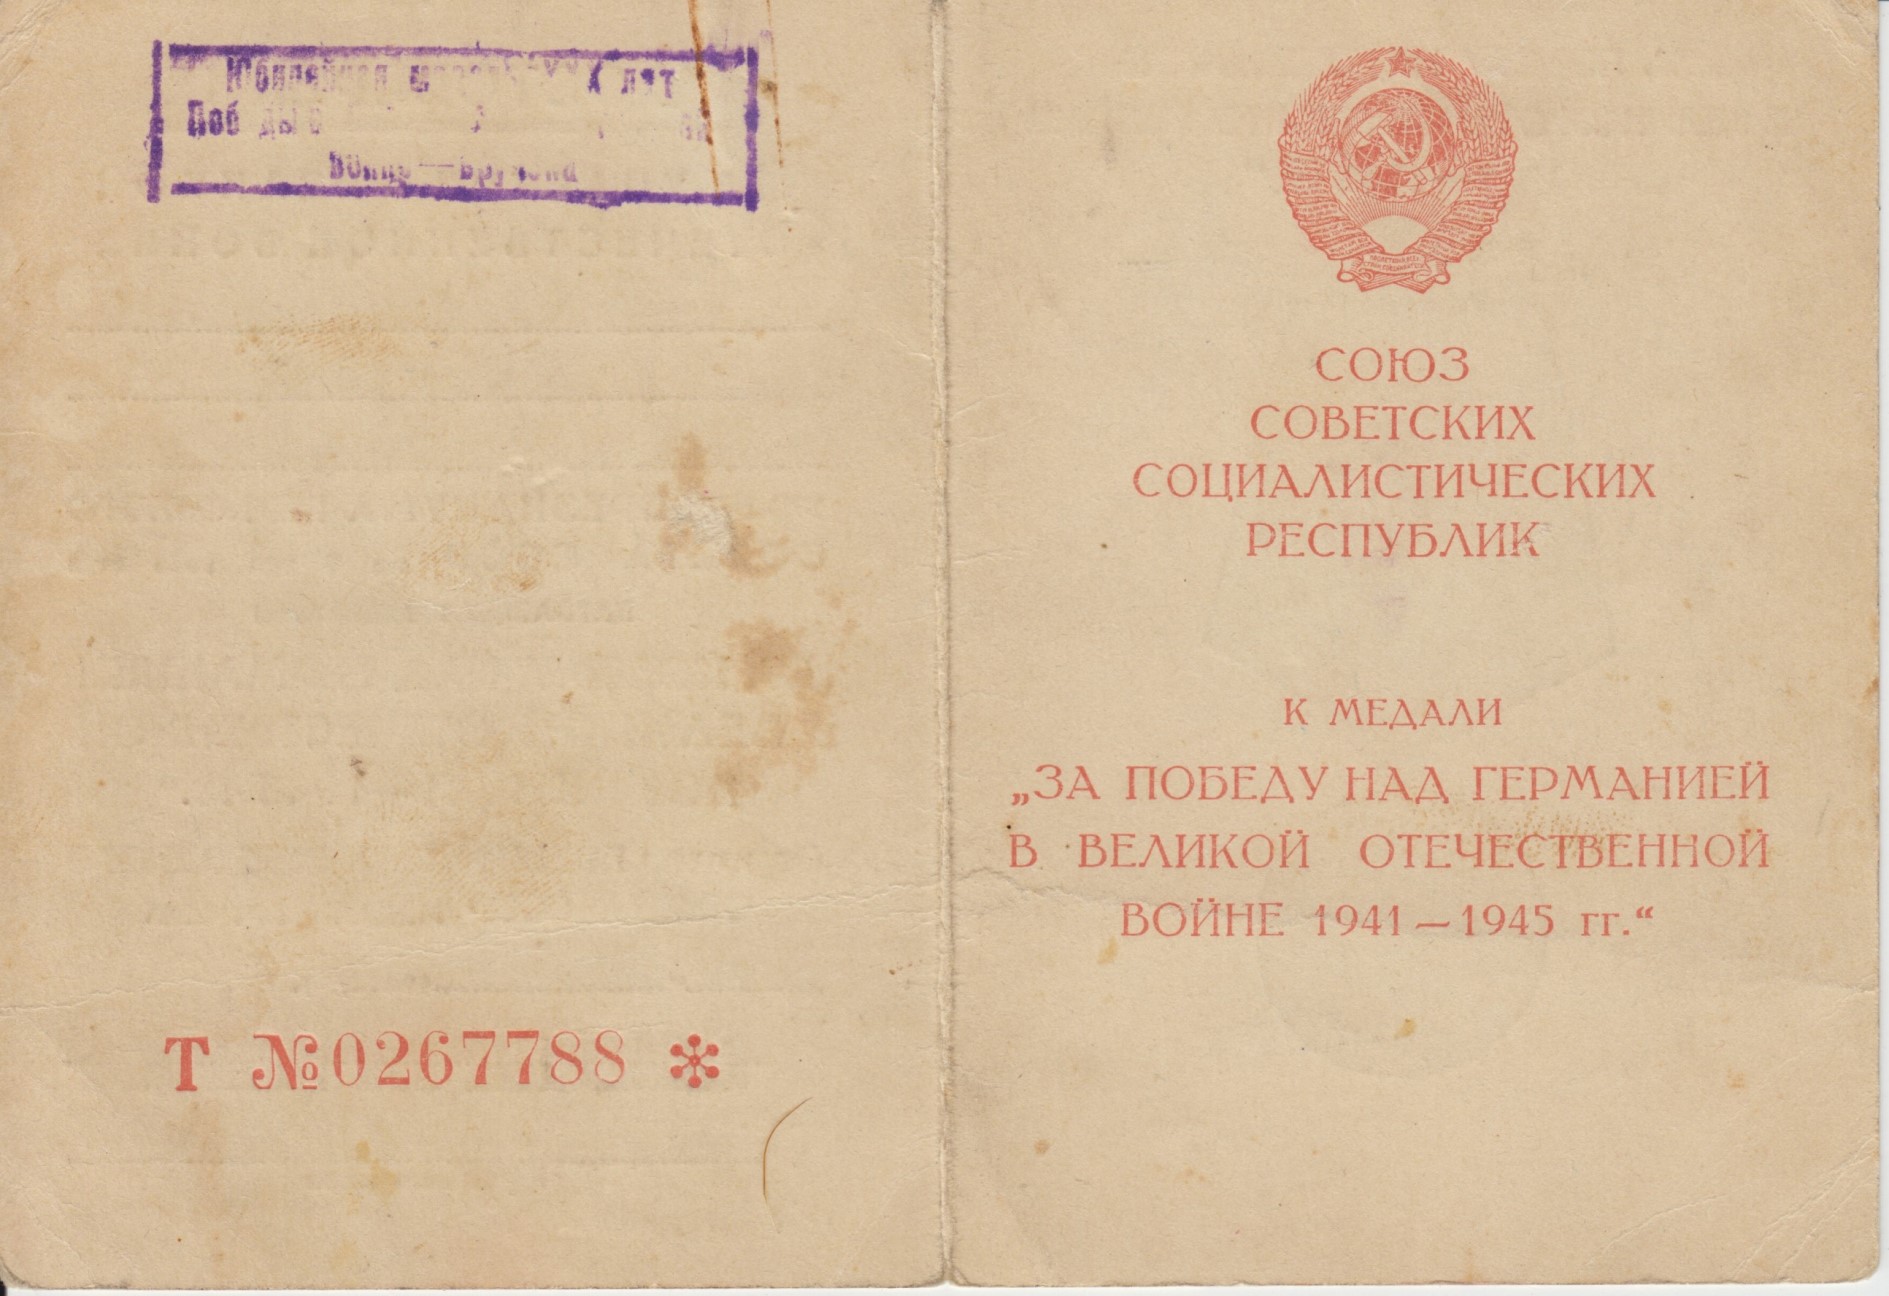 Юбилейная медаль XX лет
войне — вручена
Т №0267788
СОЮЗ
СОВЕТСКИХ
СОЦИАЛИСТИЧЕСКИХ
РЕСПУБЛИК
К МЕДАЛИ
„ЗА ПОБЕДУ НАД ГЕРМАНИЕЙ
В ВЕЛИКОЙ ОТЕЧЕСТВЕННОЙ
ВОЙНЕ 1941—1945 гг.“